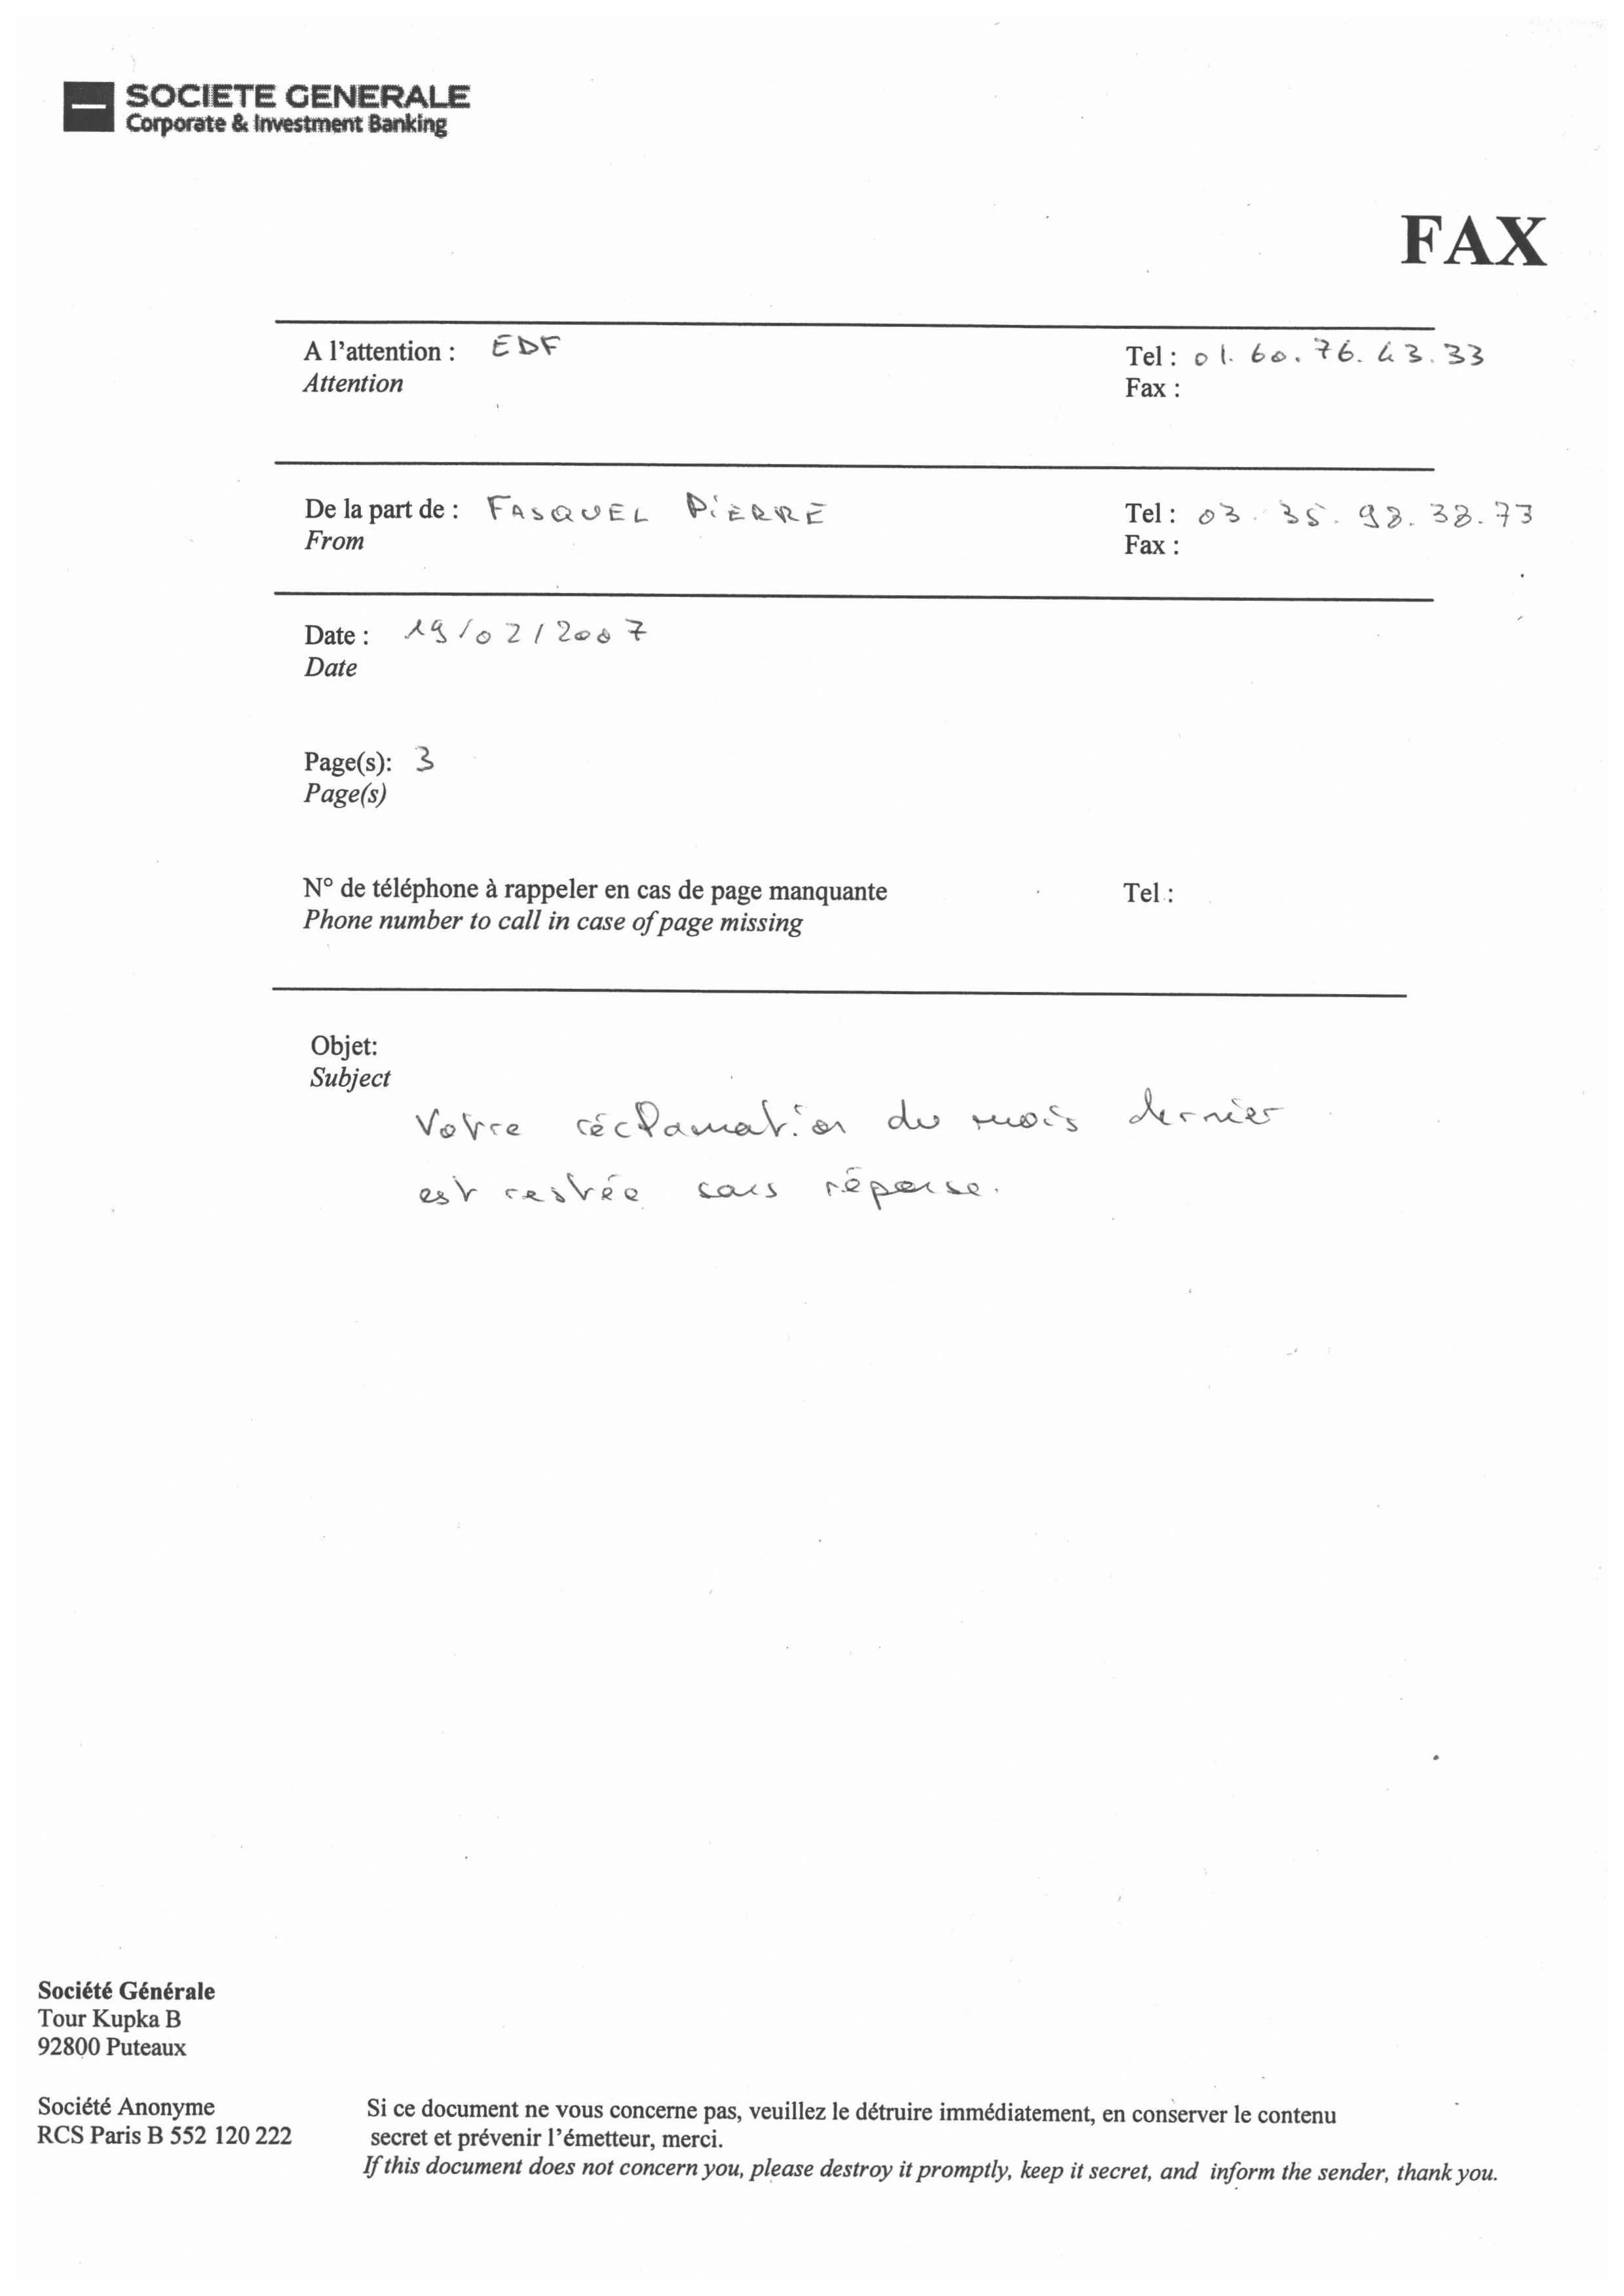 SOCIETE GENERALE
Corporate & Investment Banking
FAX
A l'attention : EDF Tel : 01.60.76.43.33
Attention Fax :
De la part de : FASQUEL PIERRE Tel : 03.35.98.38.73
From Fax :
Date : 19/02/2007
Date
Page(s): 3
Page(s)
N° de téléphone à rappeler en cas de page manquante Tel :
Phone number to call in case of page missing
Objet:
Subject
Votre réclamation du mois dernier
est restée sans réponse.
Société Générale
Tour Kupka B
92800 Puteaux
Société Anonyme Si ce document ne vous concerne pas, veuillez le détruire immédiatement, en conserver le contenu
RCS Paris B 552 120 222 secret et prévenir l'émetteur, merci.
If this document does not concern you, please destroy it promptly, keep it secret, and inform the sender, thank you.